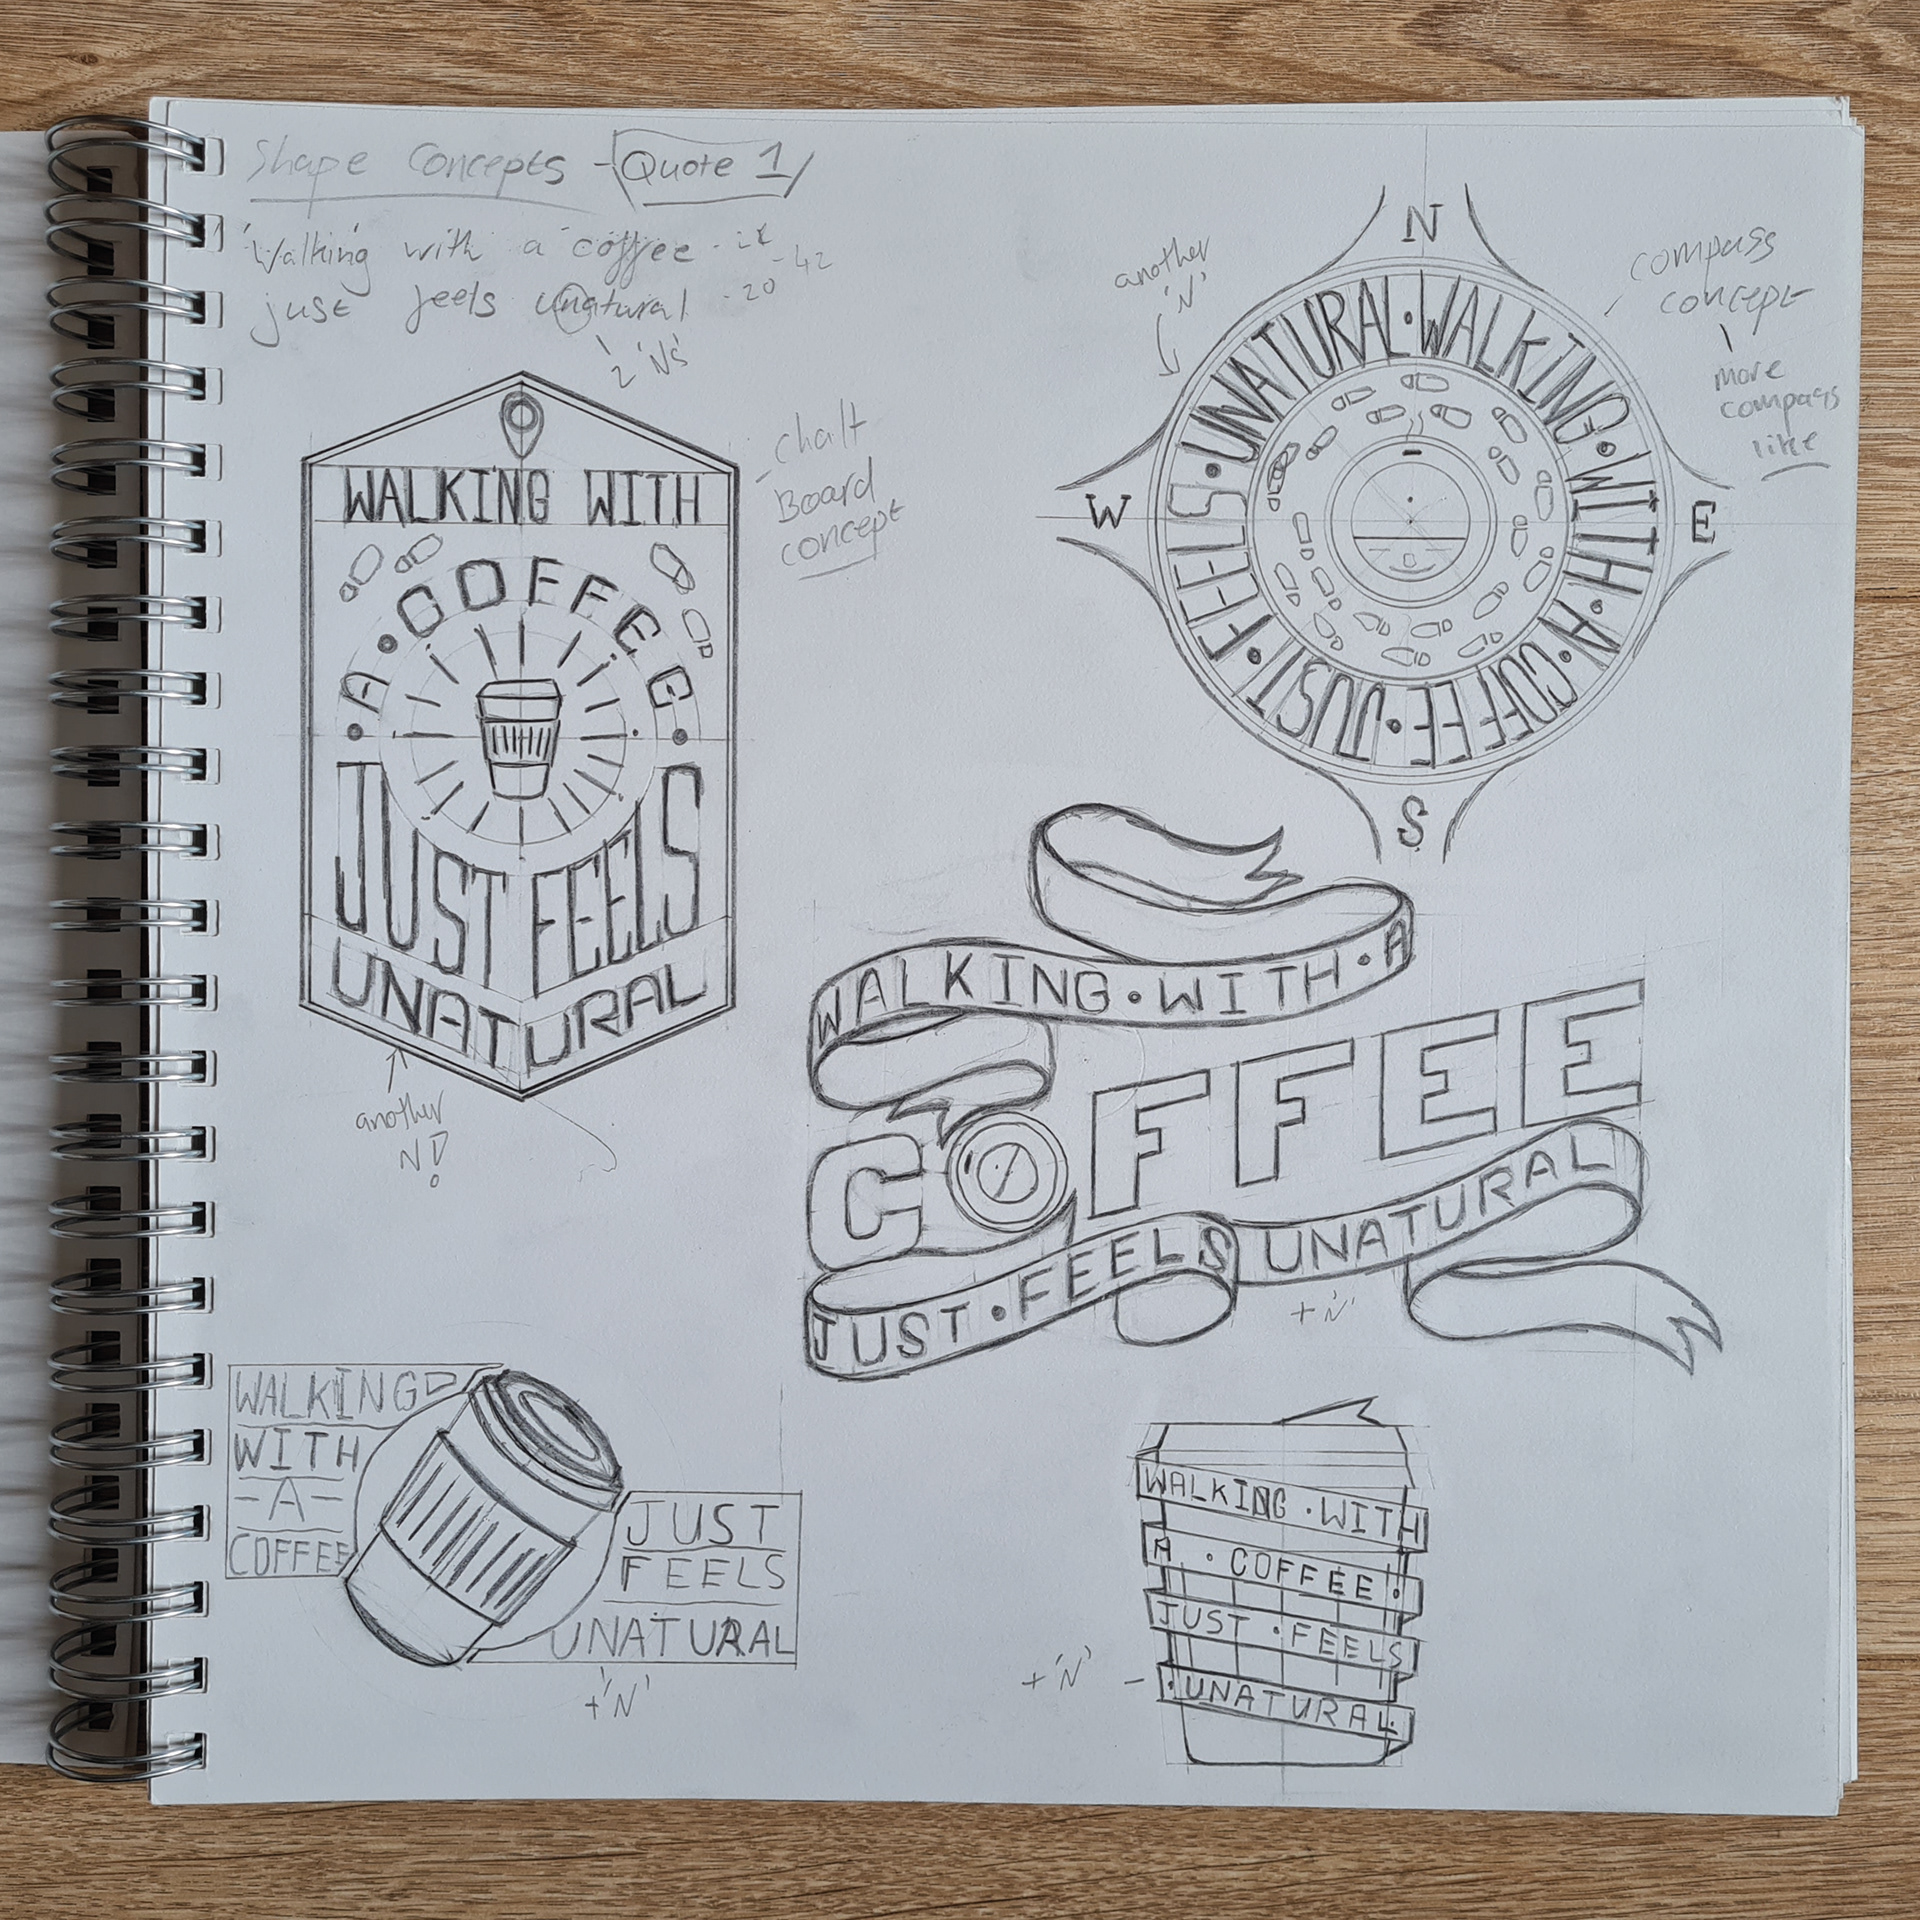 Shape Concepts - Quote 1
'Walking with a coffee
just feels unatural - 20 - 42
2 'Ns'
WALKING WITH
A • COFFEE
JUST FEELS
UNATURAL
another
N!
- chalk
Board
concept
another
'N'
N
E
S
W
UNATURAL • WALKING • WITH • A • COFFEE • JUST • FEELS •
compass
concept
more
compass
like
WALKING • WITH • A
COFFEE
JUST • FEELS UNATURAL
+ 'N'
WALKING
WITH
- A -
COFFEE
JUST
FEELS
UNATURAL
+ 'N'
WALKING • WITH
A • COFFEE •
JUST • FEELS
• UNATURAL
+ 'N' -